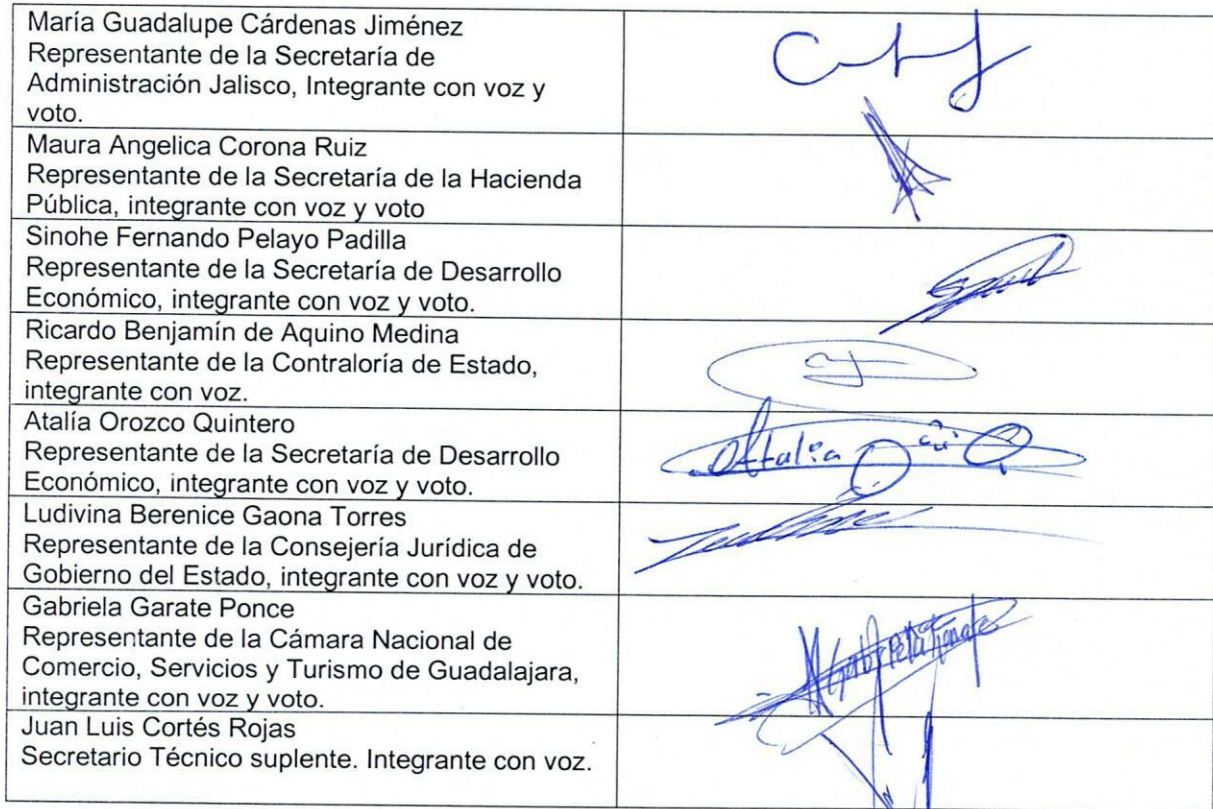 María Guadalupe Cárdenas Jiménez
Representante de la Secretaría de
Administración Jalisco, Integrante con voz y
voto.
Maura Angelica Corona Ruiz
Representante de la Secretaría de la Hacienda
Pública, integrante con voz y voto
Sinohe Fernando Pelayo Padilla
Representante de la Secretaría de Desarrollo
Económico, integrante con voz y voto.
Ricardo Benjamín de Aquino Medina
Representante de la Contraloría de Estado,
integrante con voz.
Atalía Orozco Quintero
Representante de la Secretaría de Desarrollo
Económico, integrante con voz y voto.
Ludivina Berenice Gaona Torres
Representante de la Consejería Jurídica de
Gobierno del Estado, integrante con voz y voto.
Gabriela Garate Ponce
Representante de la Cámara Nacional de
Comercio, Servicios y Turismo de Guadalajara,
integrante con voz y voto.
Juan Luis Cortés Rojas
Secretario Técnico suplente. Integrante con voz.